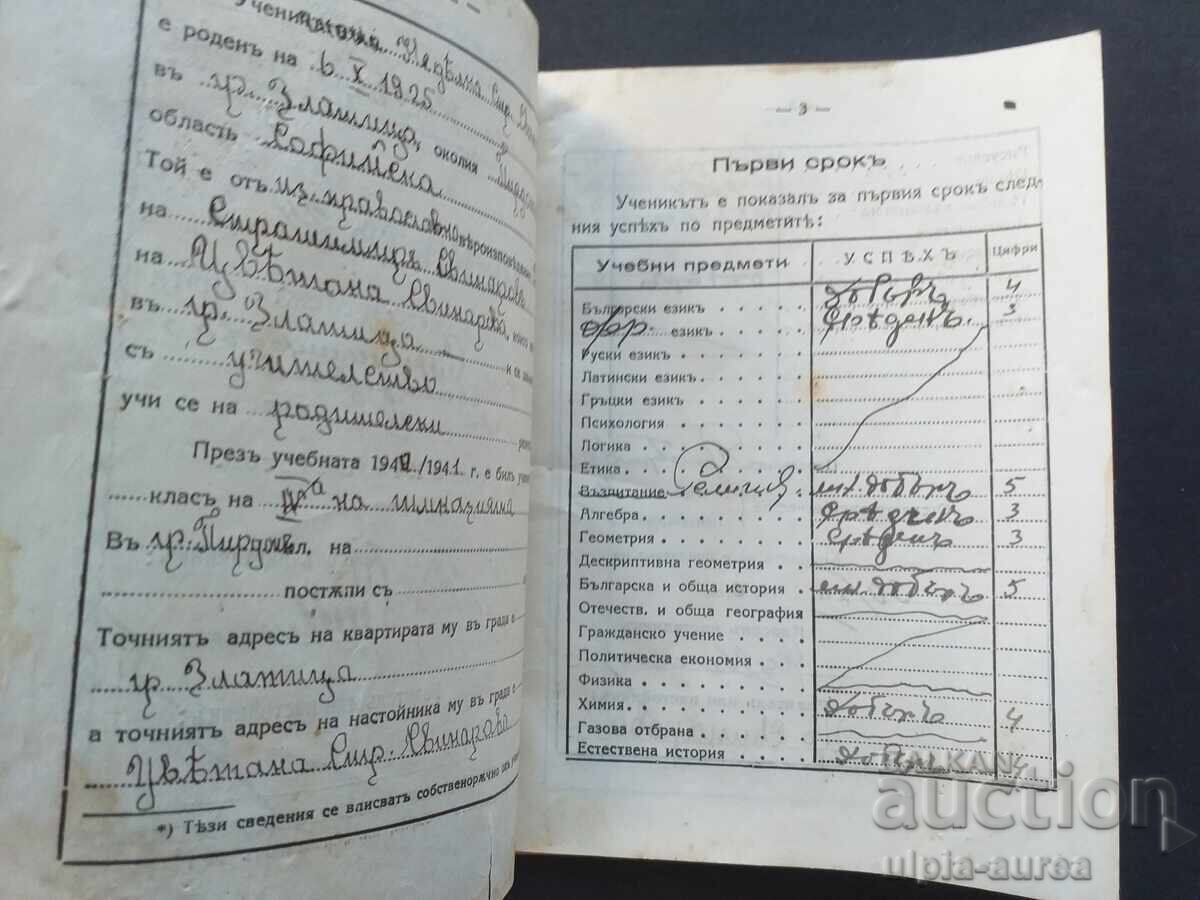 Ученик
е роденъ на 6 X 1925
въ гр. Златица, околия
область Софийска
Той е отъ из. православно вѣроизповѣдание
на Страшимиръ Свинаров
на Цвѣтана Свинарова,
въ гр. Златица и се
съ учителство
учи се на родителски
Презъ учебната 1940/1941 г. е билъ
класъ на IVа на гимназията
Въ гр. Пирдопъ ул. на
постѫпи съ
Точниятъ адресъ на квартирата му въ града е
гр. Златица
а точниятъ адресъ на настойника му въ града е
Цвѣтана Стр. Свинарова
*) Тѣзи сведения се вписватъ собственорѫчно
— 3 —
Първи срокъ
Ученикътъ е показалъ за първия срокъ след-
ния успѣхъ по предметитѣ:
Учебни предмети УСПѢХЪ Цифри
Български езикъ добъръ 4
Фр. езикъ срѣденъ 3
Руски езикъ
Латински езикъ
Гръцки езикъ
Психология
Логика
Етика
Възпитание Религия мн. добъръ 5
Алгебра срѣденъ 3
Геометрия срѣденъ 3
Дескриптивна геометрия
Българска и обща история мн. добъръ 5
Отечеств. и обща география
Гражданско учение
Политическа економия
Физика
Химия добъръ 4
Газова отбрана
Естествена история 4
BALKAN
auction
ulpia-aurea